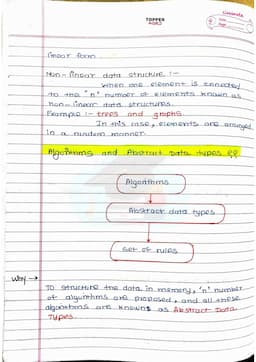 Classmate
Date
Page
TOPPER
linear form.
Non-linear data structure :-
When one element is connected
to the 'n' number of elements known as
non-linear data structures.
Example :- trees and graphs
In this case, elements are arranged
in a random manner.
Algorithms and Abstract Data types
Algorithms
Abstract data types
set of rules
Why →
To structure the data in memory, 'n' number
of algorithms are proposed, and all these
algorithms are known as Abstract Data
Types.